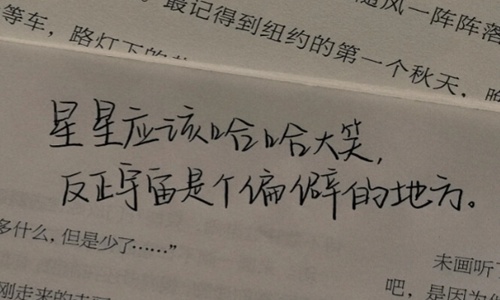 随风一阵阵落
等车，路灯下的
最记得到纽约的第一个秋天，
星星应该哈哈大笑，
反正宇宙是个偏僻的地方。
多什么，但是少了……”
未画听了
刚走来的
吧，是因为